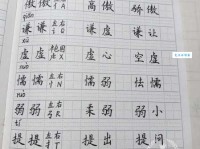 傲 傲 左右 高傲 骄傲
谦 谦 左右 谦虚 谦让
xū
虚 虚 X 虚心 空虚
nuò
懦 懦 左右 N 懦弱 怯懦
ruò
弱 弱 左右 R 柔弱 弱小
tí
提 提 左右 T 提出 提问